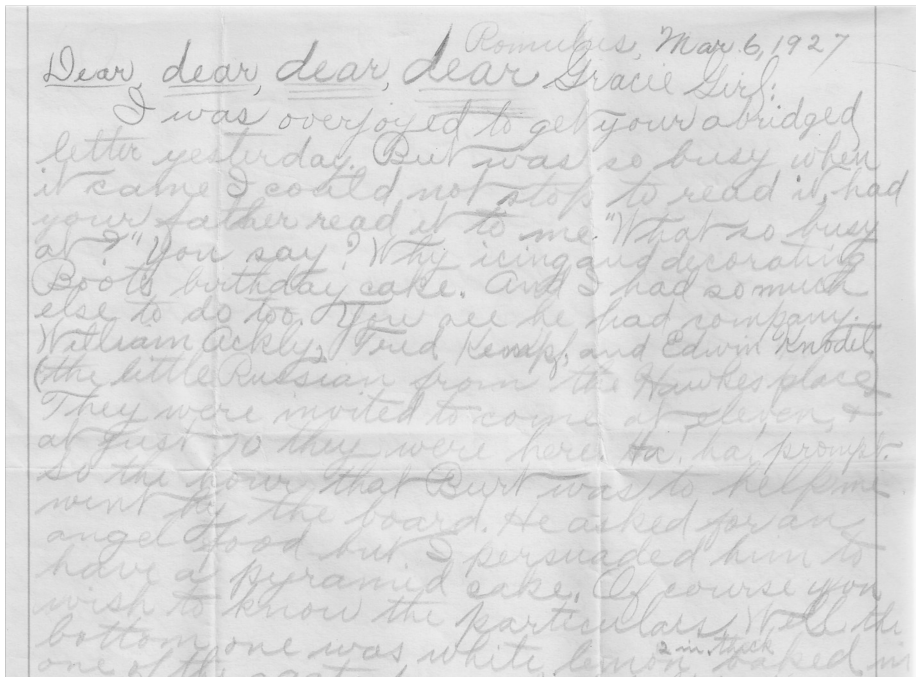 Romulus, Mar. 6, 1927
Dear, dear, dear, dear Gracie Girl:
I was overjoyed to get your abridged
letter yesterday. But was so busy when
it came I could not stop to read it, had
your father read it to me. "What so busy
at?" You say? Why icing and decorating
Boots birthday cake. And I had so much
else to do too. You see he had company.
William Ackly, Fred Kempf, and Edwin Knodel
(the little Russian from the Hawkes place
They were invited to come at eleven, &
at just 10 they were here. Ha! ha! prompt.
So the hour that Burt was to help me
went by the board. He asked for an
angel food but I persuaded him to
have a pyramid cake. Of course you
wish to know the particulars. Well the
bottom one was white lemon baked in
2 in. thick
one of the